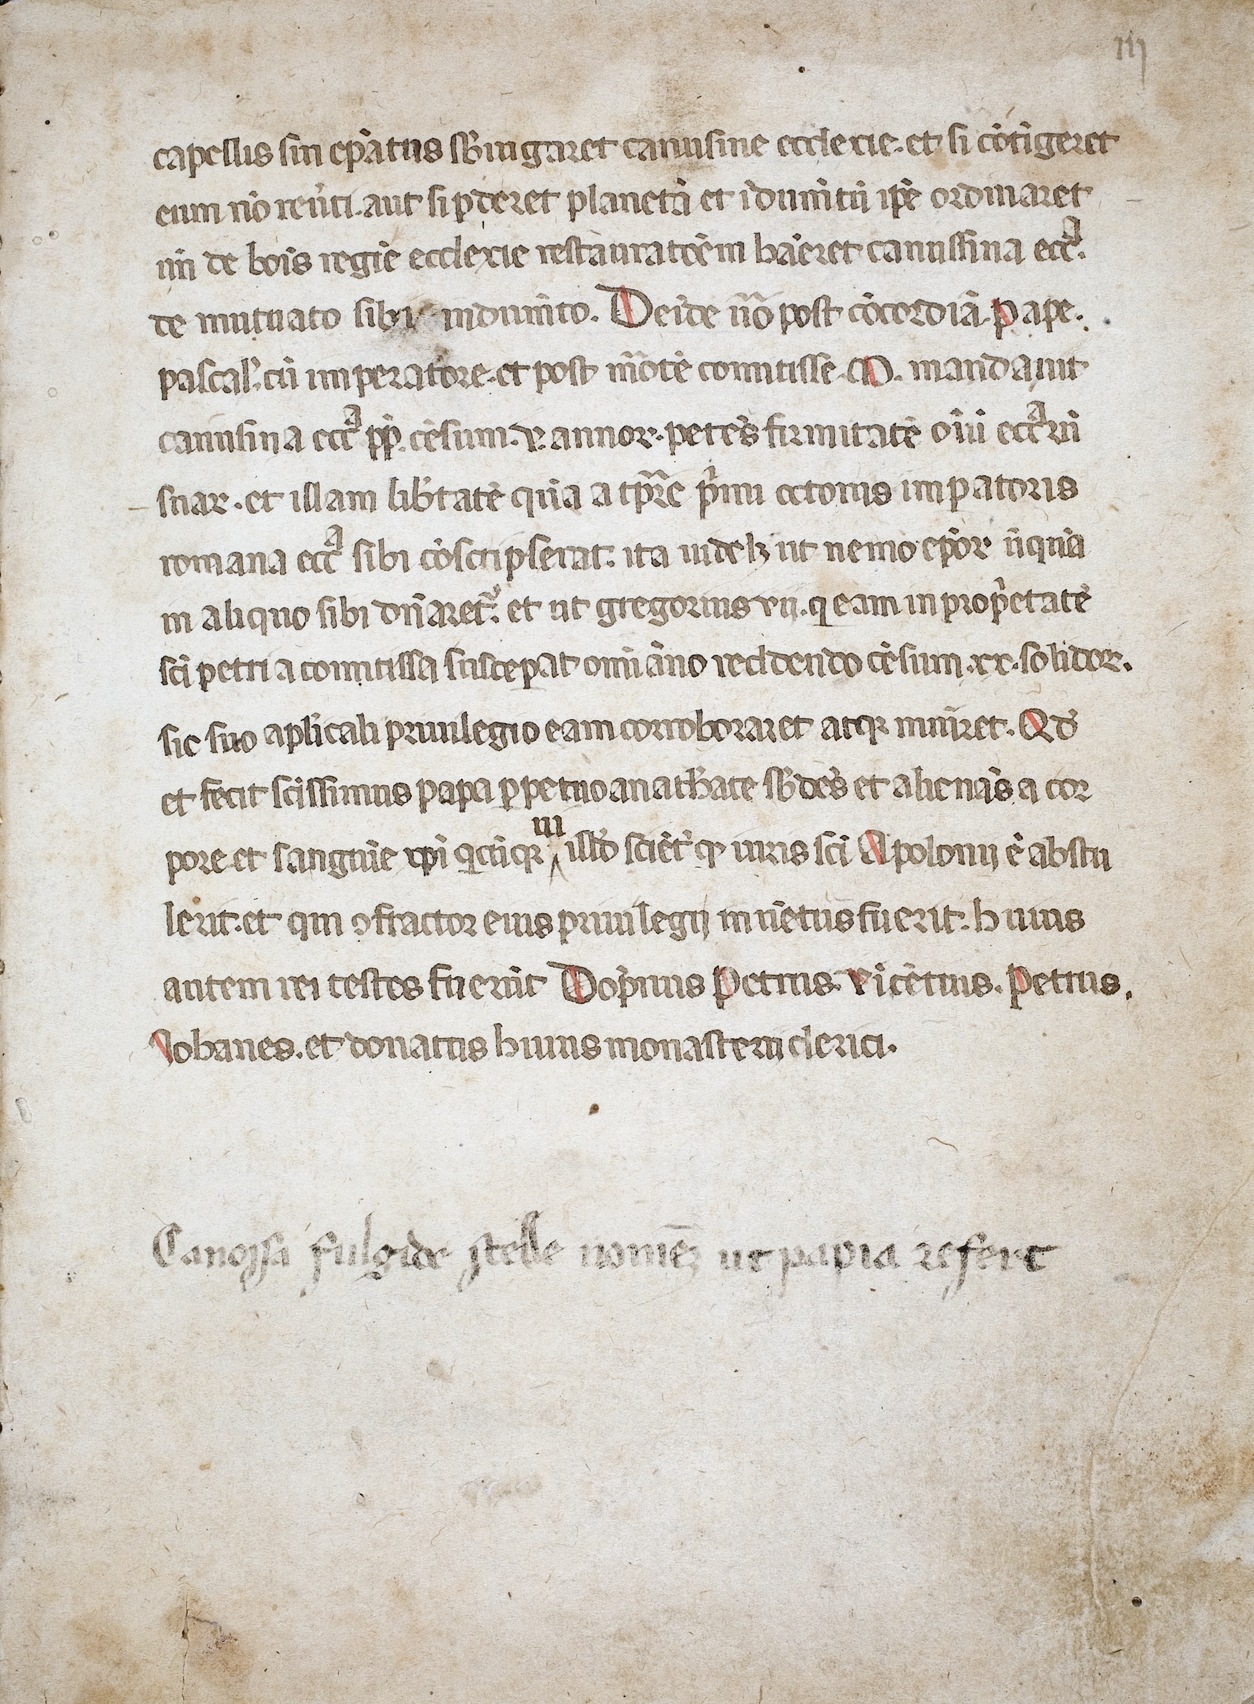 iij
capellis sui ep̄atus sb̄iugaret canusine ecclexie. et si cōtīgeret
eum nō reūti. aut si ꝑderet planetā et īdum̄tū ip̄e ordinaret
de bōis regie ecclexie restauratōem hāeret canussina ecc̄a.
de mutuato sibi indum̄to. Deīde nō post cōcordiā Pape.
pascal'. cū imperatore. et post m̄otē comitisse. M. mandauit
canusina ecc̄a pp̄. cēsum. v. annoꝝ. petēs firmitatē oīū ecc̄aꝝ
suaꝝ. et illam lib̄tatē quā a tp̄re p̄mi ottonis impatoris
romana ecc̄a sibi cōscripserat. ita uidelꝫ ut nemo ep̄oꝝ ūquā
in aliquo sibi dn̄aret᷑. et ut gregorius vij. q eam in prop̄etatē
sc̄i petri a comitissa susceꝑat omī āno reddendo cēsum. xx. solidoꝝ.
sic suo aplīcali priuilegio eam corroboraret atqꝫ muniret. Qd̄
et fecit sc̄issimus papa ꝑpetuo anath̄ate sb̄dēs et alienās a cor
pore et sanguīe xp̄i q̄cūqꝫ iii ill'd sciēt' ꝙ iuris sc̄i Apolonij ē abstu
lerit. et qui ꝯfractor eius priuilegij inuētus fuerit. huius
autem rei testes fuerūt Dop̄nus Petrus. vicētius. Petrus.
Iohanes. et donatus huius monasterij clerici.
Canossa fulgide stelle nomēꝫ ut papia refert